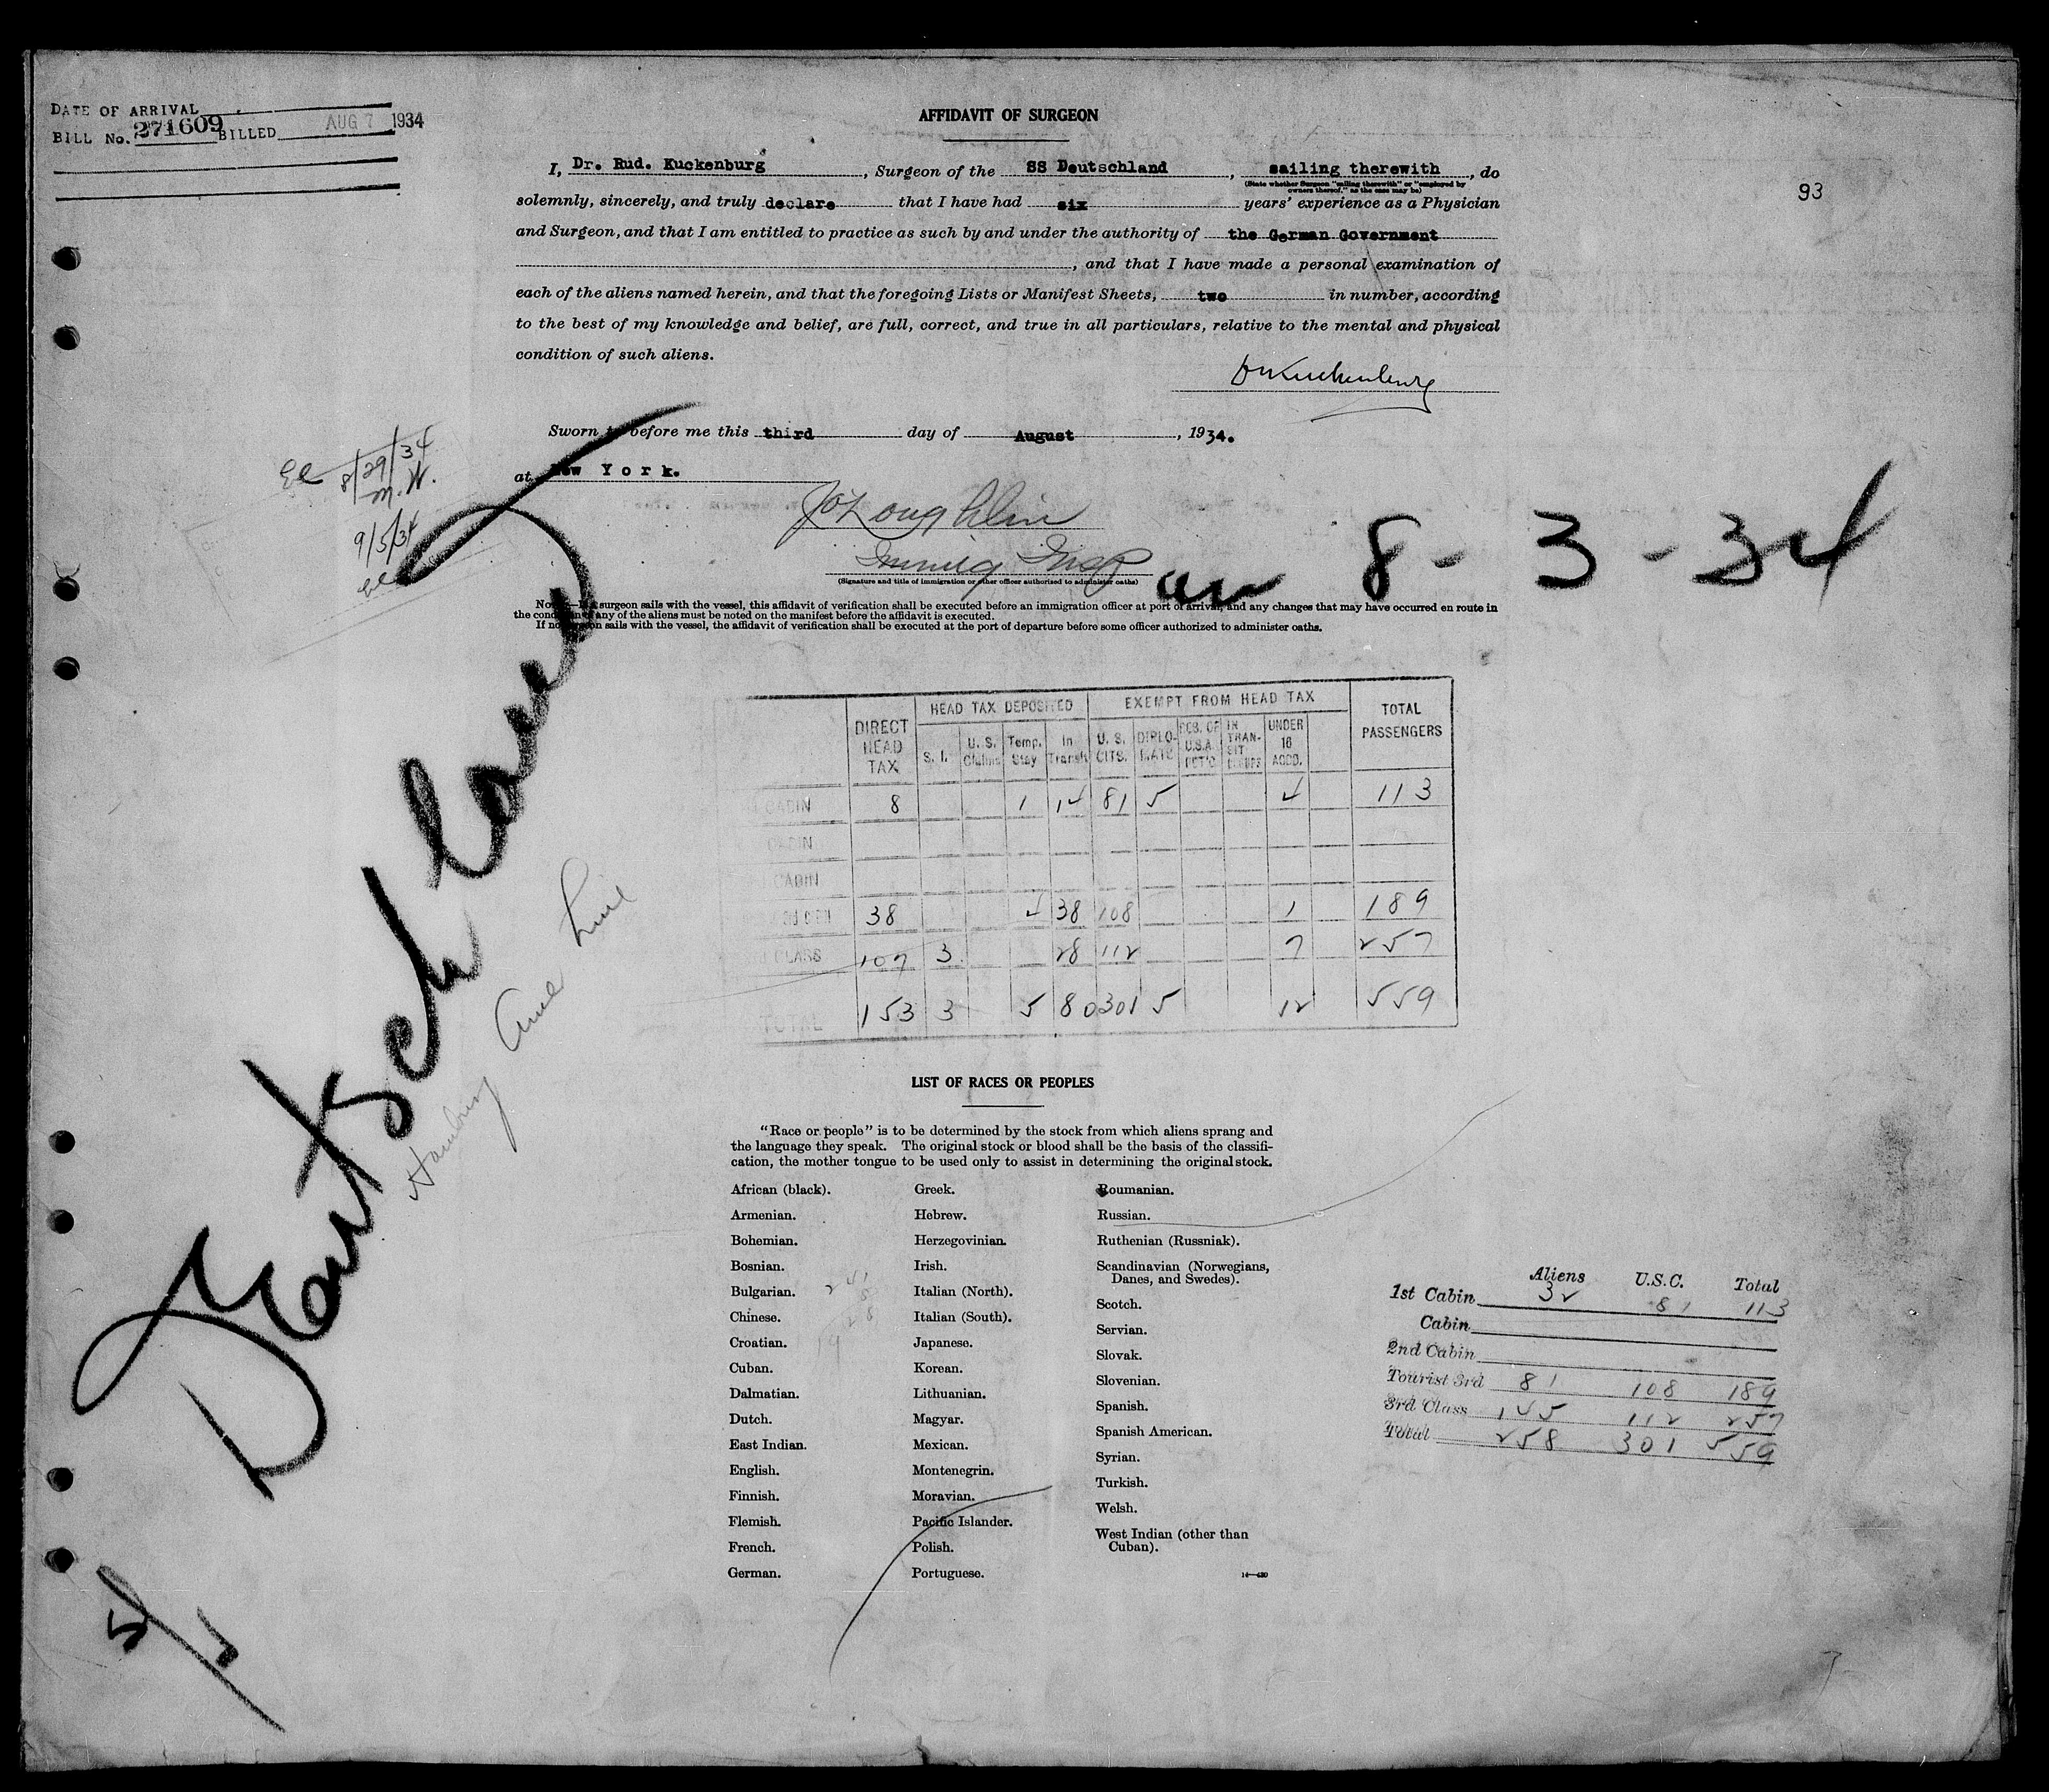 DATE OF ARRIVAL
BILL No. 271609 BILLED AUG 7 1934
93
AFFIDAVIT OF SURGEON
I, Dr. Rud. Kuckenburg, Surgeon of the SS Deutschland, sailing therewith, do
(State whether Surgeon "sailing therewith" or "employed by
owners thereof," as the case may be)
solemnly, sincerely, and truly declare that I have had six years' experience as a Physician
and Surgeon, and that I am entitled to practice as such by and under the authority of the German Government
, and that I have made a personal examination of
each of the aliens named herein, and that the foregoing Lists or Manifest Sheets, two in number, according
to the best of my knowledge and belief, are full, correct, and true in all particulars, relative to the mental and physical
condition of such aliens.
Sworn to before me this third day of August, 1934.
at New York.
8/29/34
M.W.
9/5/34
Immig Insp
(Signature and title of immigration or other officer authorized to administer oaths)
8-3-34
Note.—If a surgeon sails with the vessel, this affidavit of verification shall be executed before an immigration officer at port of arrival, and any changes that may have occurred en route in
the condition of any of the aliens must be noted on the manifest before the affidavit is executed.
If no surgeon sails with the vessel, the affidavit of verification shall be executed at the port of departure before some officer authorized to administer oaths.
Deutschland
Hamburg Ame Line
DIRECT HEAD TAX | HEAD TAX DEPOSITED | EXEMPT FROM HEAD TAX | TOTAL PASSENGERS
S. I. | U. S. Claims | Temp. Stay | In Transit | U. S. CITS. | DIPLOMATS | IN TRANSIT | UNDER 16 ACCD.
CABIN 8 1 14 81 5 4 113
CABIN
CABIN
38 4 38 108 1 189
CLASS 107 3 28 112 7 257
TOTAL 153 3 5 80 301 5 12 559
LIST OF RACES OR PEOPLES
"Race or people" is to be determined by the stock from which aliens sprang and
the language they speak. The original stock or blood shall be the basis of the classifi-
cation, the mother tongue to be used only to assist in determining the original stock.
African (black).
Armenian.
Bohemian.
Bosnian.
Bulgarian.
Chinese.
Croatian.
Cuban.
Dalmatian.
Dutch.
East Indian.
English.
Finnish.
Flemish.
French.
German.
Greek.
Hebrew.
Herzegovinian.
Irish.
Italian (North).
Italian (South).
Japanese.
Korean.
Lithuanian.
Magyar.
Mexican.
Montenegrin.
Moravian.
Pacific Islander.
Polish.
Portuguese.
Roumanian.
Russian.
Ruthenian (Russniak).
Scandinavian (Norwegians,
Danes, and Swedes).
Scotch.
Servian.
Slovak.
Slovenian.
Spanish.
Spanish American.
Syrian.
Turkish.
Welsh.
West Indian (other than
Cuban).
Aliens U.S.C. Total
1st Cabin 32 81 113
Cabin
2nd Cabin
Tourist 3rd 81 108 189
3rd Class 145 112 257
Total 258 301 559